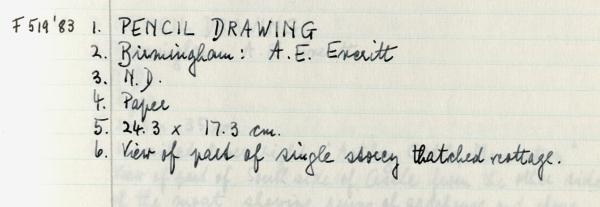 F519'83 1. PENCIL DRAWING
2. Birmingham: A.E. Everitt
3. N.D.
4. Paper
5. 24.3 x 17.3 cm.
6. View of part of single storey thatched cottage.